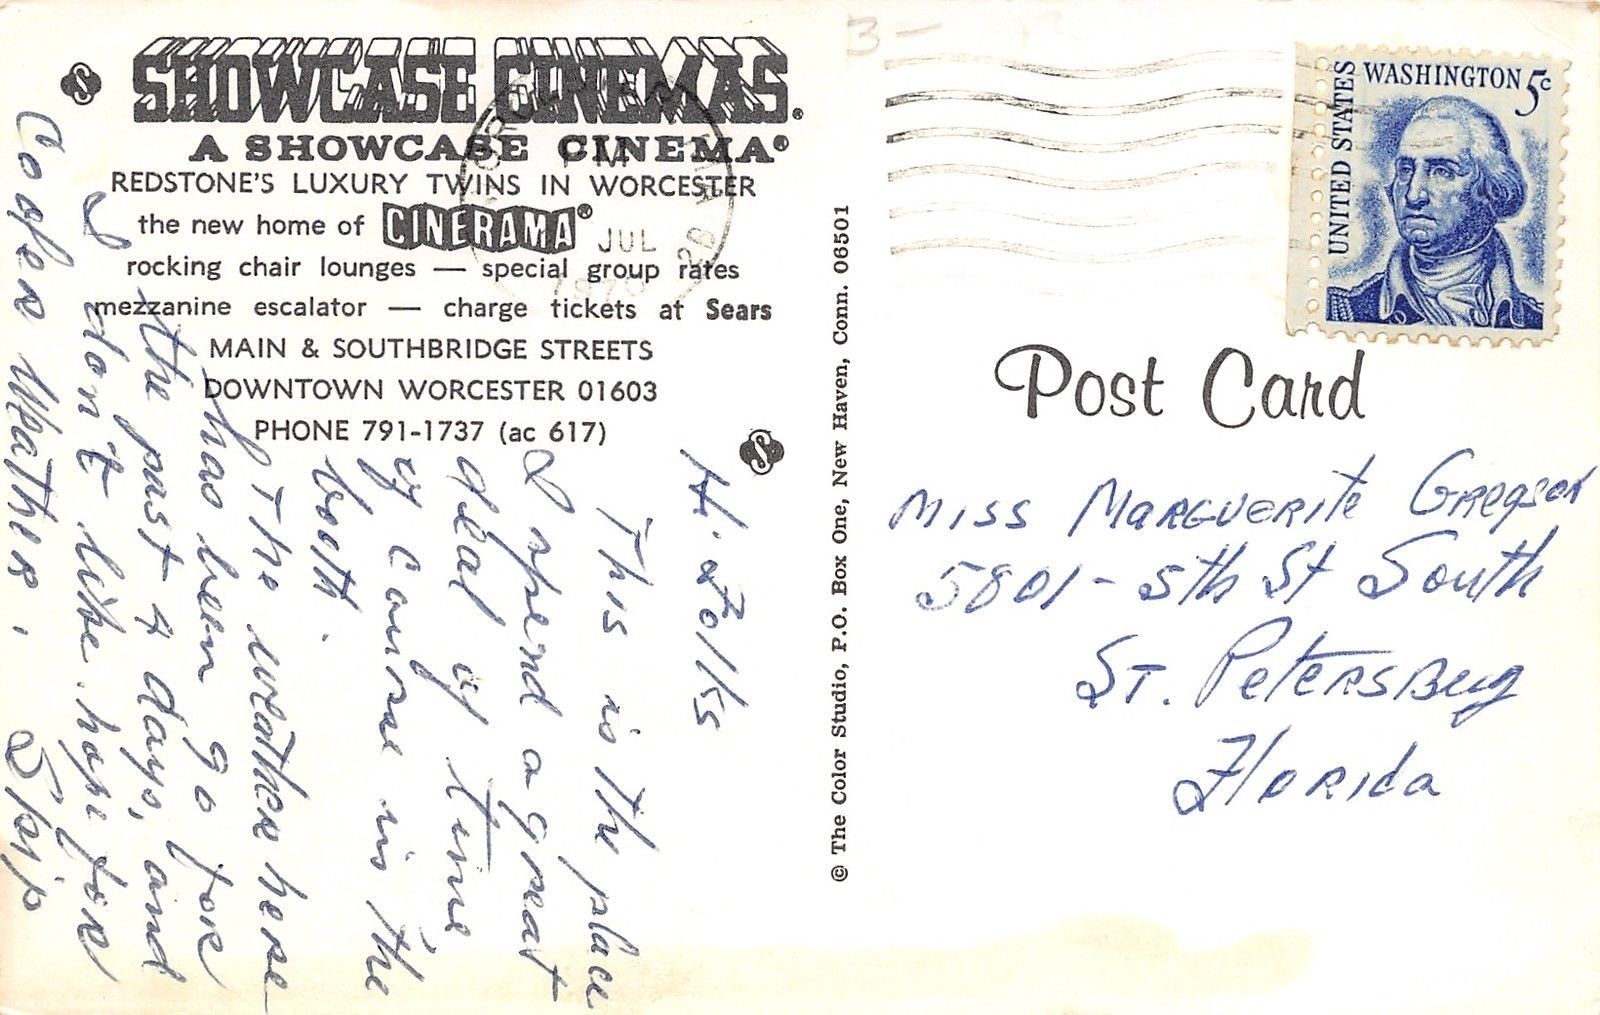 SHOWCASE CINEMAS®
A SHOWCASE CINEMA®
REDSTONE'S LUXURY TWINS IN WORCESTER
the new home of CINERAMA®
rocking chair lounges — special group rates
mezzanine escalator — charge tickets at Sears
MAIN & SOUTHBRIDGE STREETS
DOWNTOWN WORCESTER 01603
PHONE 791-1737 (ac 617)
S
S
Hi Folks
This is the place
I spend a great
deal of time
of course in the
booth.
The weather here
has been 90 for
the past 4 days, and
I don't like. hope for
Cooler Weather.
Skip
© The Color Studio, P.O. Box One, New Haven, Conn. 06501
3-
PM
JUL
28
UNITED STATES
WASHINGTON 5c
Post Card
Miss Marguerite Gregson
5801-5th St South
St. Petersburg
Florida